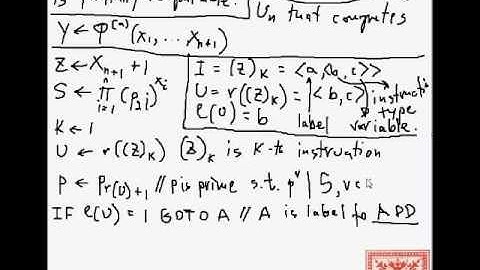 is partially computable.
Un that computes
Y ← Φ⁽ⁿ⁾(x₁, ..., xₙ₊₁)
Z ← Xₙ₊₁ + 1
S ← ∏ᵢ₌₁ⁿ (p₂ᵢ)^xᵢ
K ← 1
I = (Z)_K = <a, <b, c>>
U = r((Z)_K) = <b, c> instruction type
ℓ(U) = b label variable.
U ← r((Z)_K) (Z)_K is K-th instruction
P ← P_r(U)+1 // P is prime s.t. p^v | S, v
IF ℓ(U) = 1 GOTO A // A is label for ADD